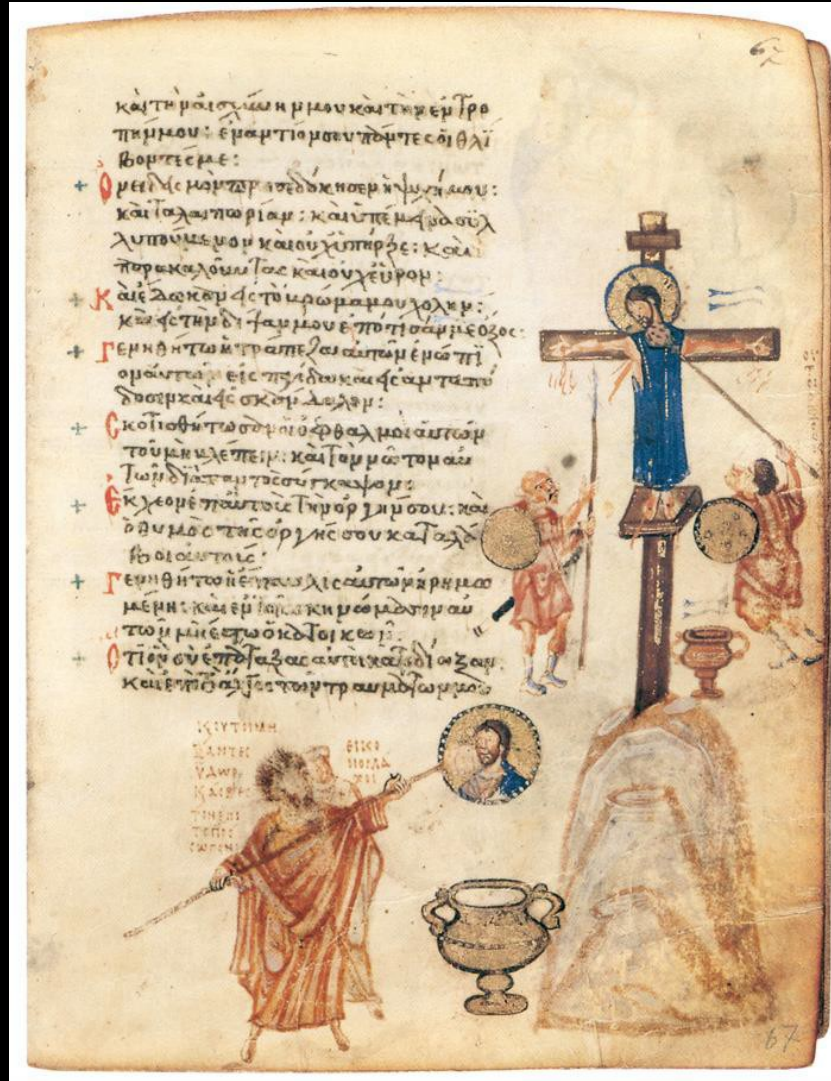 καὶ τὴν αἰσχύνην μου καὶ τὴν ἐντρο
πήν μου: ἐναντίον σου πάντες οἱ θλί
βοντές με:
Ὀνειδισμὸν προσεδόκησεν ἡ ψυχή μου:
καὶ ταλαιπωρίαν: καὶ ὑπέμεινα συλ
λυπούμενον καὶ οὐχ ὑπῆρξε: καὶ
παρακαλοῦντας καὶ οὐχ εὗρον:
Καὶ ἔδωκαν εἰς τὸ βρῶμά μου χολήν:
καὶ εἰς τὴν δίψαν μου ἐπότισάν με ὄξος:
Γενηθήτω ἡ τράπεζα αὐτῶν ἐνώπι
ον αὐτῶν εἰς παγίδα καὶ εἰς ἀνταπό
δοσιν καὶ εἰς σκάνδαλον:
Σκοτισθήτωσαν οἱ ὀφθαλμοὶ αὐτῶν
τοῦ μὴ βλέπειν: καὶ τὸν νῶτον αὐ
τῶν διὰ παντὸς σύγκαψον:
Ἔκχεον ἐπ' αὐτοὺς τὴν ὀργήν σου: καὶ
ὁ θυμὸς τῆς ὀργῆς σου καταλά
βοι αὐτούς:
Γενηθήτω ἡ ἔπαυλις αὐτῶν ἠρημω
μένη: καὶ ἐν τοῖς σκηνώμασιν αὐ
τῶν μὴ ἔστω ὁ κατοικῶν:
Ὅτι ὃν σὺ ἐπάταξας αὐτοὶ κατεδίωξαν
καὶ ἐπὶ τὸ ἄλγος τῶν τραυμάτων μου
ΞΑΝΤΕΣ
ΥΔΩΡ
ΕΙΚΟ
ΝΟΜΑ
ΧΟΙ
67